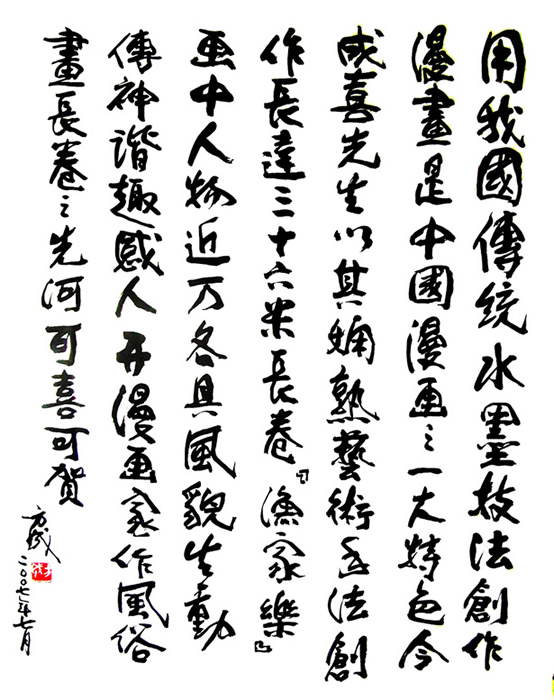 用我國傳统水墨技法創作
漫畫是中國漫画之一大特色今
成喜先生以其娴熟藝術手法創
作長達三十六米長卷『漁家樂』
画中人物近万各具風貌生動
傳神谐趣感人开漫画家作風俗
畫長卷之先河可喜可賀
方成
二〇〇七年七月